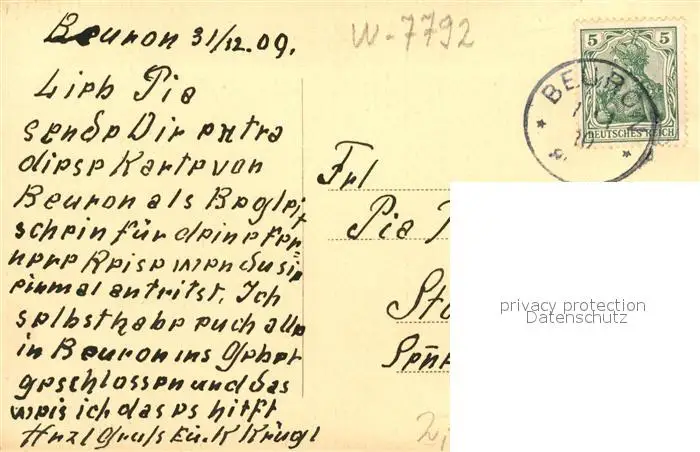 Beuron 31/12.09.
W-7792
Lieb Pia
sende Dir extra
diese Karte von
Beuron als Begleit
schein für deine fer=
nere Reise wen du sie
einmal antritst, Ich
selbst habe euch alle
in Beuron ins Gebet
geschlossen und das
weis ich das es hilft
Herzl Gruß Eu. K Krügl
5 5
DEUTSCHES REICH
BEURO
Frl
Pia
privacy protection
Datenschutz